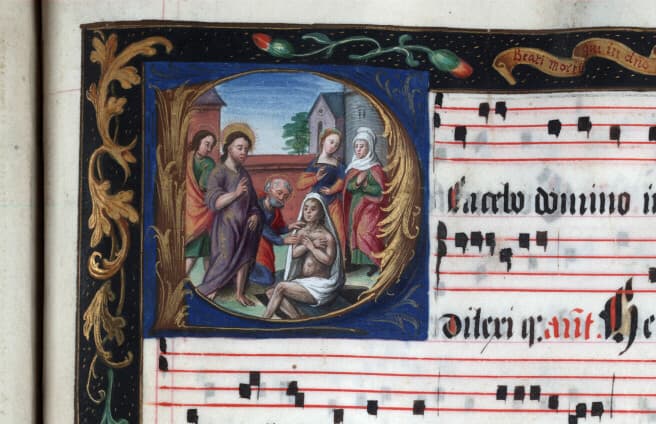 Beati mortui qui in dno
Placebo domino in
Dilexi q: ant. He